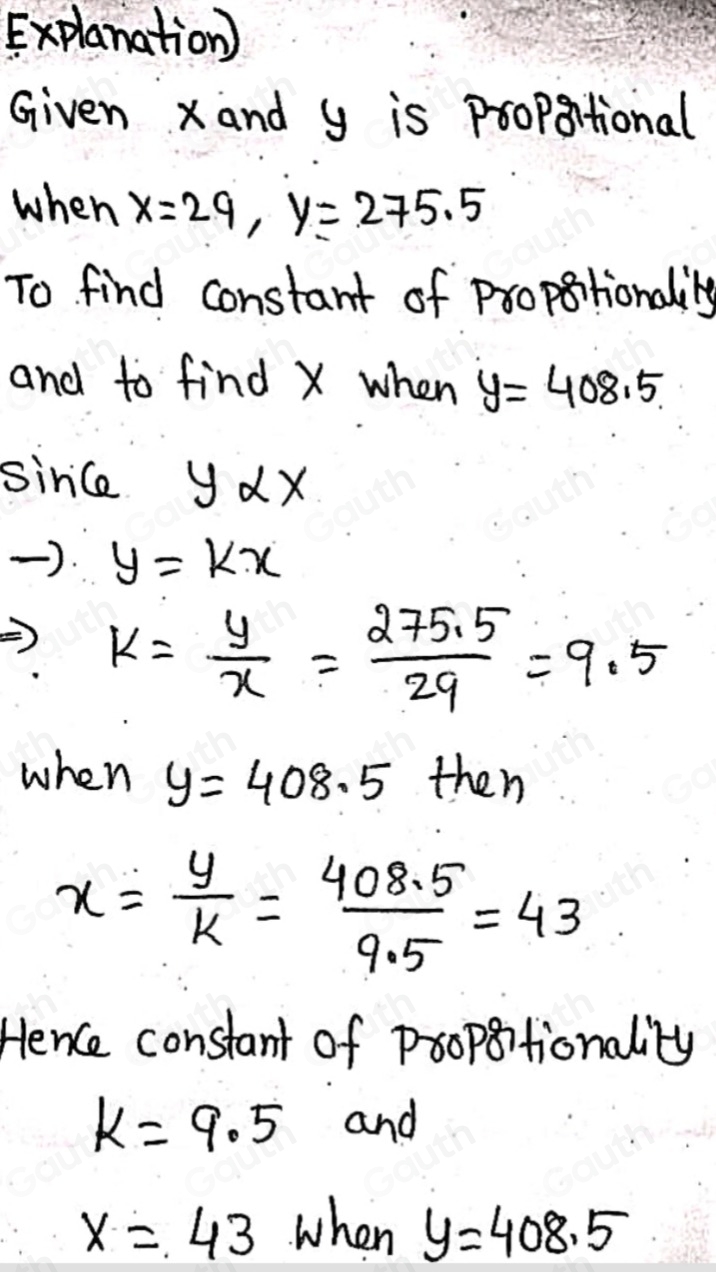 Explanation)
Given x and y is proportional
when x=29, y=275.5
To find constant of proportionality
and to find x when y=408.5
since y∝x
→ y=kx
⇒ k= y/x = 275.5/29 =9.5
when y=408.5 then
x= y/k = 408.5/9.5 =43
Hence constant of proportionality
k=9.5 and
x=43 when y=408.5